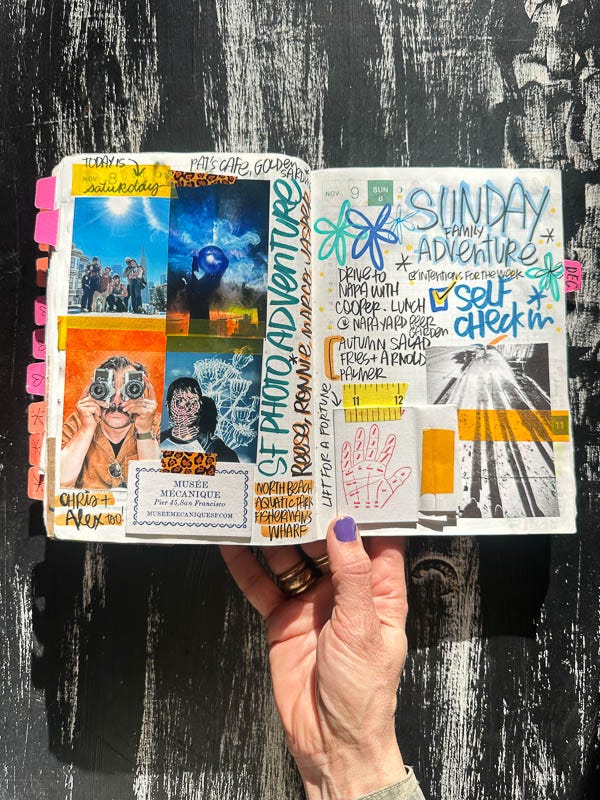 TODAY IS
NOV 8
saturdday
PAT'S CAFE, GOLDEN
SARDINE
SF PHOTO ADVENTURE
Reesa, RONNIE, MARCO, JASPER
CHRIS +
Alex TOO!
MUSÉE
MÉCANIQUE
Pier 45, San Francisco
MUSEEMECANIQUESF.COM
NORTH BEACH
AQUATIC PARK
FISHERMANS
WHARF
NOV 9
SUN
SUNDAY
FAMILY
ADVENTURE
& INTENTIONS FOR THE WEEK
SELF
CHECK IN
DRIVE TO
NAPA WITH
COOPER. LUNCH
@ NAPA YARD BEER
GARDEN
AUTUMN SALAD
FRIES + ARNOLD
PALMER
LIFT FOR A FORTUNE
11 12
DEC
11